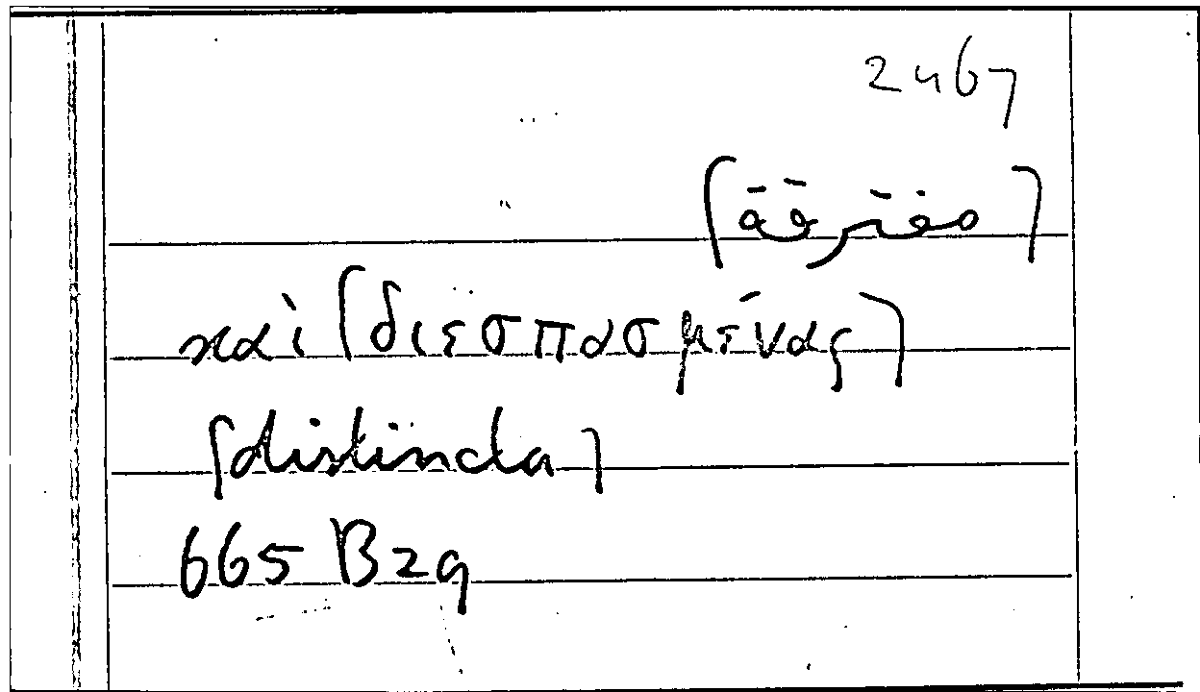 2467
⌈مفترقة⌉
καὶ ⌈διεσπασμένας⌉
⌈distincta⌉
665 B29